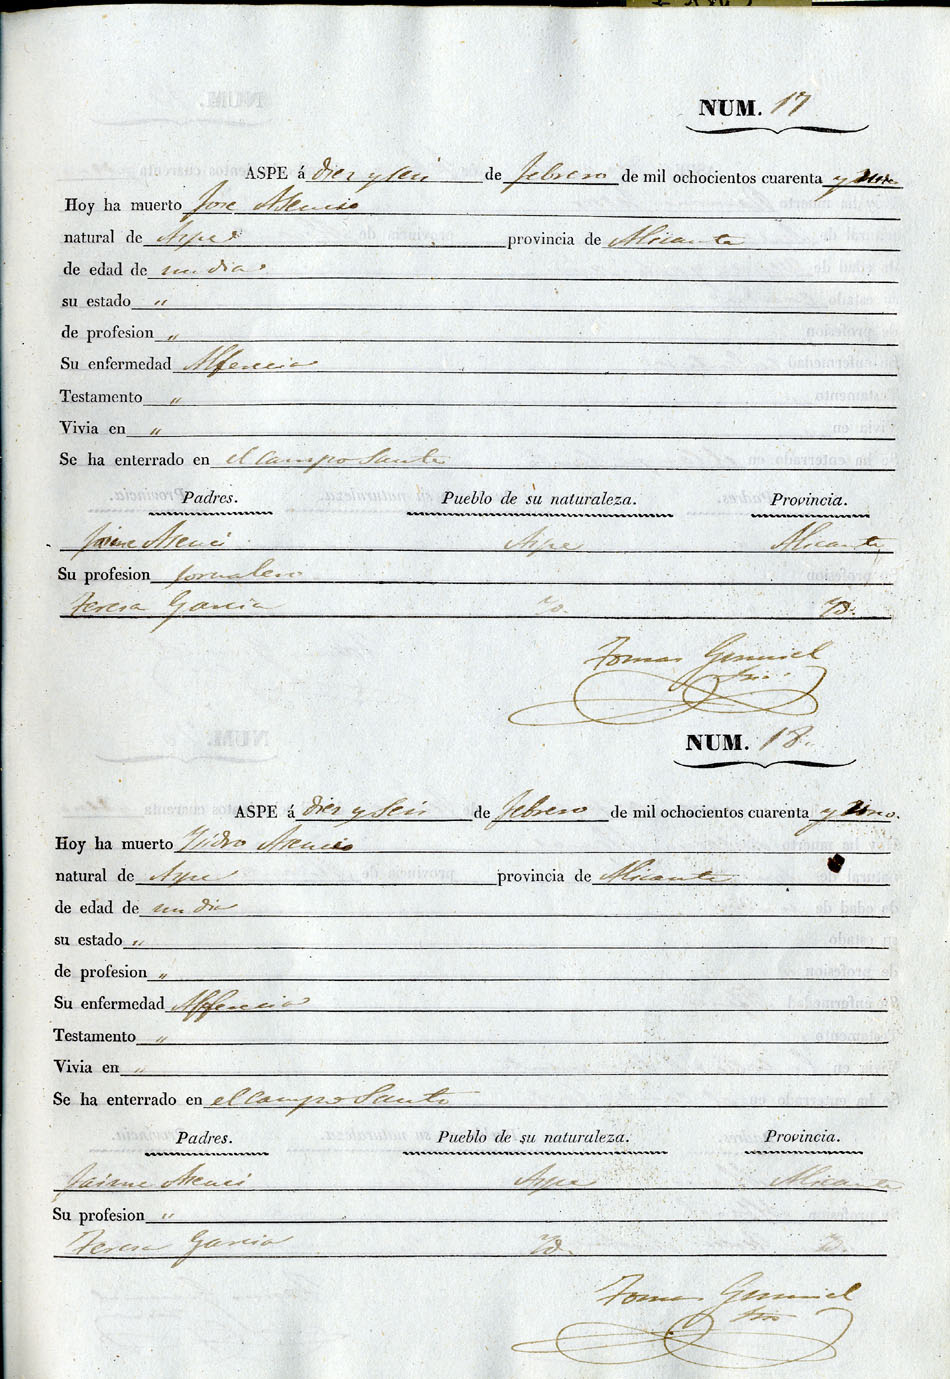 NUM. 17
ASPE á diez y seis de febrero de mil ochocientos cuarenta y uno
Hoy ha muerto Jose Asencio
natural de Aspe provincia de Alicante
de edad de un dia
su estado "
de profesion "
Su enfermedad Alferecia
Testamento "
Vivia en "
Se ha enterrado en el campo Santo
Padres. Pueblo de su naturaleza. Provincia.
Jaime Asenci Aspe Alicante
Su profesion jornalero
Teresa Garcia Yd. Yd.
Tomas
NUM. 18
ASPE á diez y seis de febrero de mil ochocientos cuarenta y uno.
Hoy ha muerto Ysidro Asencio
natural de Aspe provincia de Alicante
de edad de un dia
su estado "
de profesion "
Su enfermedad Alferecia
Testamento "
Vivia en "
Se ha enterrado en el campo Santo
Padres. Pueblo de su naturaleza. Provincia.
Jaime Asenci Aspe Alicante
Su profesion "
Teresa Garcia Yd. Yd.
Tomas